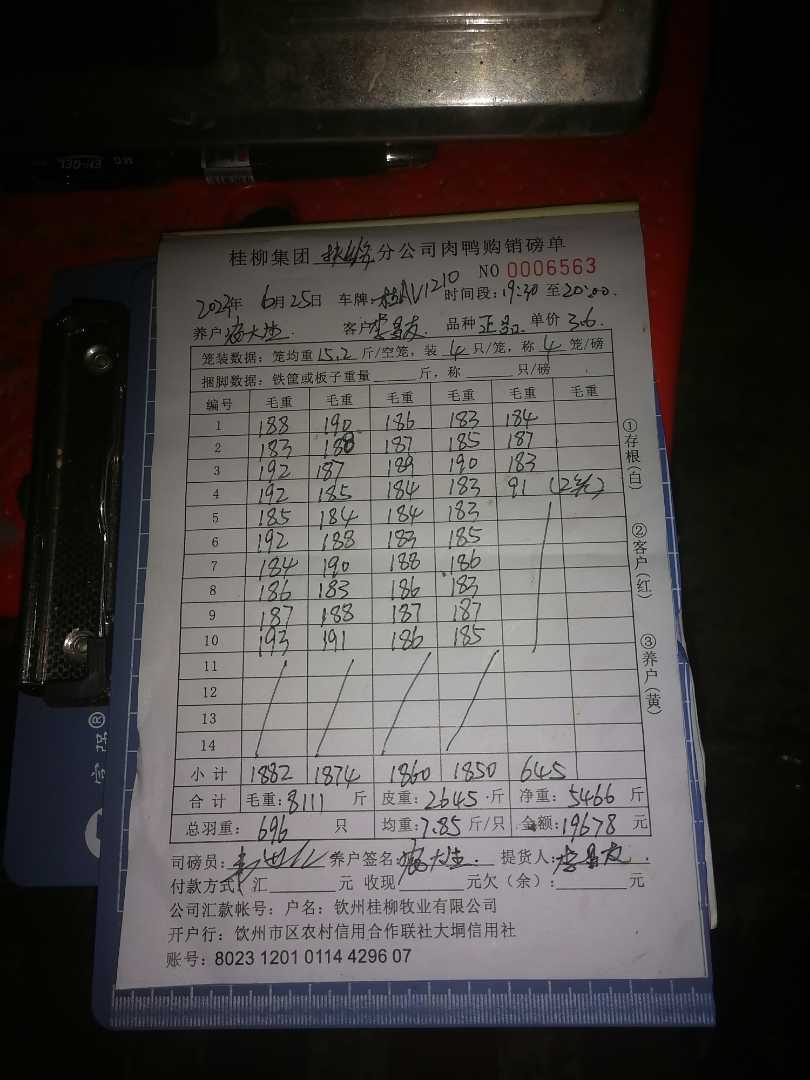 桂柳集团 扶绥 分公司肉鸭购销磅单
NO 0006563
年 6月25日 车牌: 桂AV1210 时间段: 19:30 至20:00.
养户: 客户: 品种 单价 3.6
笼装数据: 笼均重 15.2 斤/空笼, 装 4 只/笼, 称 4 笼/磅
捆脚数据: 铁筐或板子重量 斤, 称 只/磅
编号 毛重 毛重 毛重 毛重 毛重 毛重
1 188 190 186 183 184
2 183 188 187 185 187
3 192 187 189 190 183
4 192 185 184 183 91 (2笼)
5 185 184 184 183
6 192 188 183 185
7 184 190 188 186
8 186 183 186 183
9 187 188 187 187
10 193 191 186 185
11
12
13
14
小计 1882 1874 1860 1850 645
合计 毛重: 8111 斤 皮重: 2645 斤 净重: 5466 斤
总羽重: 696 只 均重: 7.85 斤/只 金额: 19678 元
司磅员: 养户签名: 提货人:
付款方式: 汇 元 收现 元欠(余): 元
公司汇款帐号: 户名: 钦州桂柳牧业有限公司
开户行: 钦州市区农村信用合作联社大垌信用社
账号: 8023 1201 0114 4296 07
①存根(白)
②客户(红)
③养户(黄)